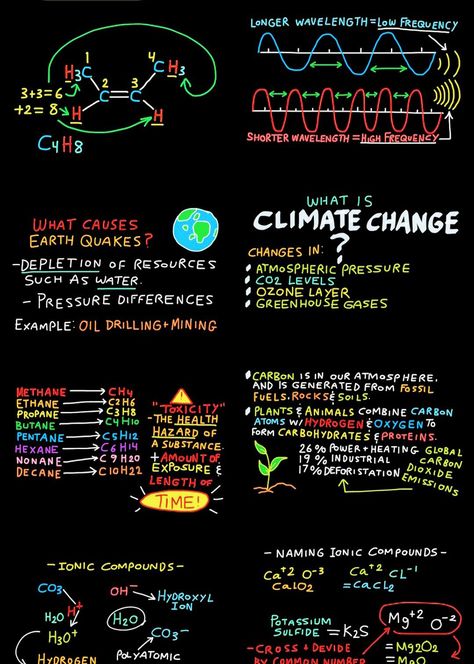 H3C
1
2
3
4
CH3
3+3=6
+2=8
H
H
C4H8
LONGER WAVELENGTH = LOW FREQUENCY
SHORTER WAVELENGTH = HIGH FREQUENCY
WHAT CAUSES
EARTH QUAKES?
-DEPLETION OF RESOURCES
SUCH AS WATER.
- PRESSURE DIFFERENCES
EXAMPLE: OIL DRILLING + MINING
WHAT IS
CLIMATE CHANGE
?
CHANGES IN:
ATMOSPHERIC PRESSURE
CO2 LEVELS
OZONE LAYER
GREENHOUSE GASES
METHANE → CH4
ETHANE → C2H6
PROPANE → C3H8
BUTANE → C4H10
PENTANE → C5H12
HEXANE → C6H14
NONANE → C9H20
DECANE → C10H22
!
"TOXICITY"
-THE HEALTH
HAZARD OF
A SUBSTANCE.
+ AMOUNT OF
EXPOSURE &
LENGTH OF
TIME!
CARBON IS IN OUR ATMOSPHERE,
AND IS GENERATED FROM FOSSIL
FUELS, ROCKS & SOILS.
PLANTS & ANIMALS COMBINE CARBON
ATOMS W/ HYDROGEN & OXYGEN TO
FORM CARBOHYDRATES & PROTEINS.
26% POWER + HEATING
19% INDUSTRIAL
17% DEFORISTATION
GLOBAL
CARBON
DIOXIDE
EMISSIONS
-IONIC COMPOUNDS-
CO3
H+
H2O
H3O+
HYDROGEN
OH- → HYDROXYL
ION
H2O
CO3-
POLYATOMIC
- NAMING IONIC COMPOUNDS -
Ca+2 O-3
CaLO2
Ca+2 CL-1
=CaCL2
POTASSIUM
SULFIDE = K2S
Mg+2 O-2
= Mg2O2
-CROSS + DEVIDE
BY COMMON NUMBER
MgO